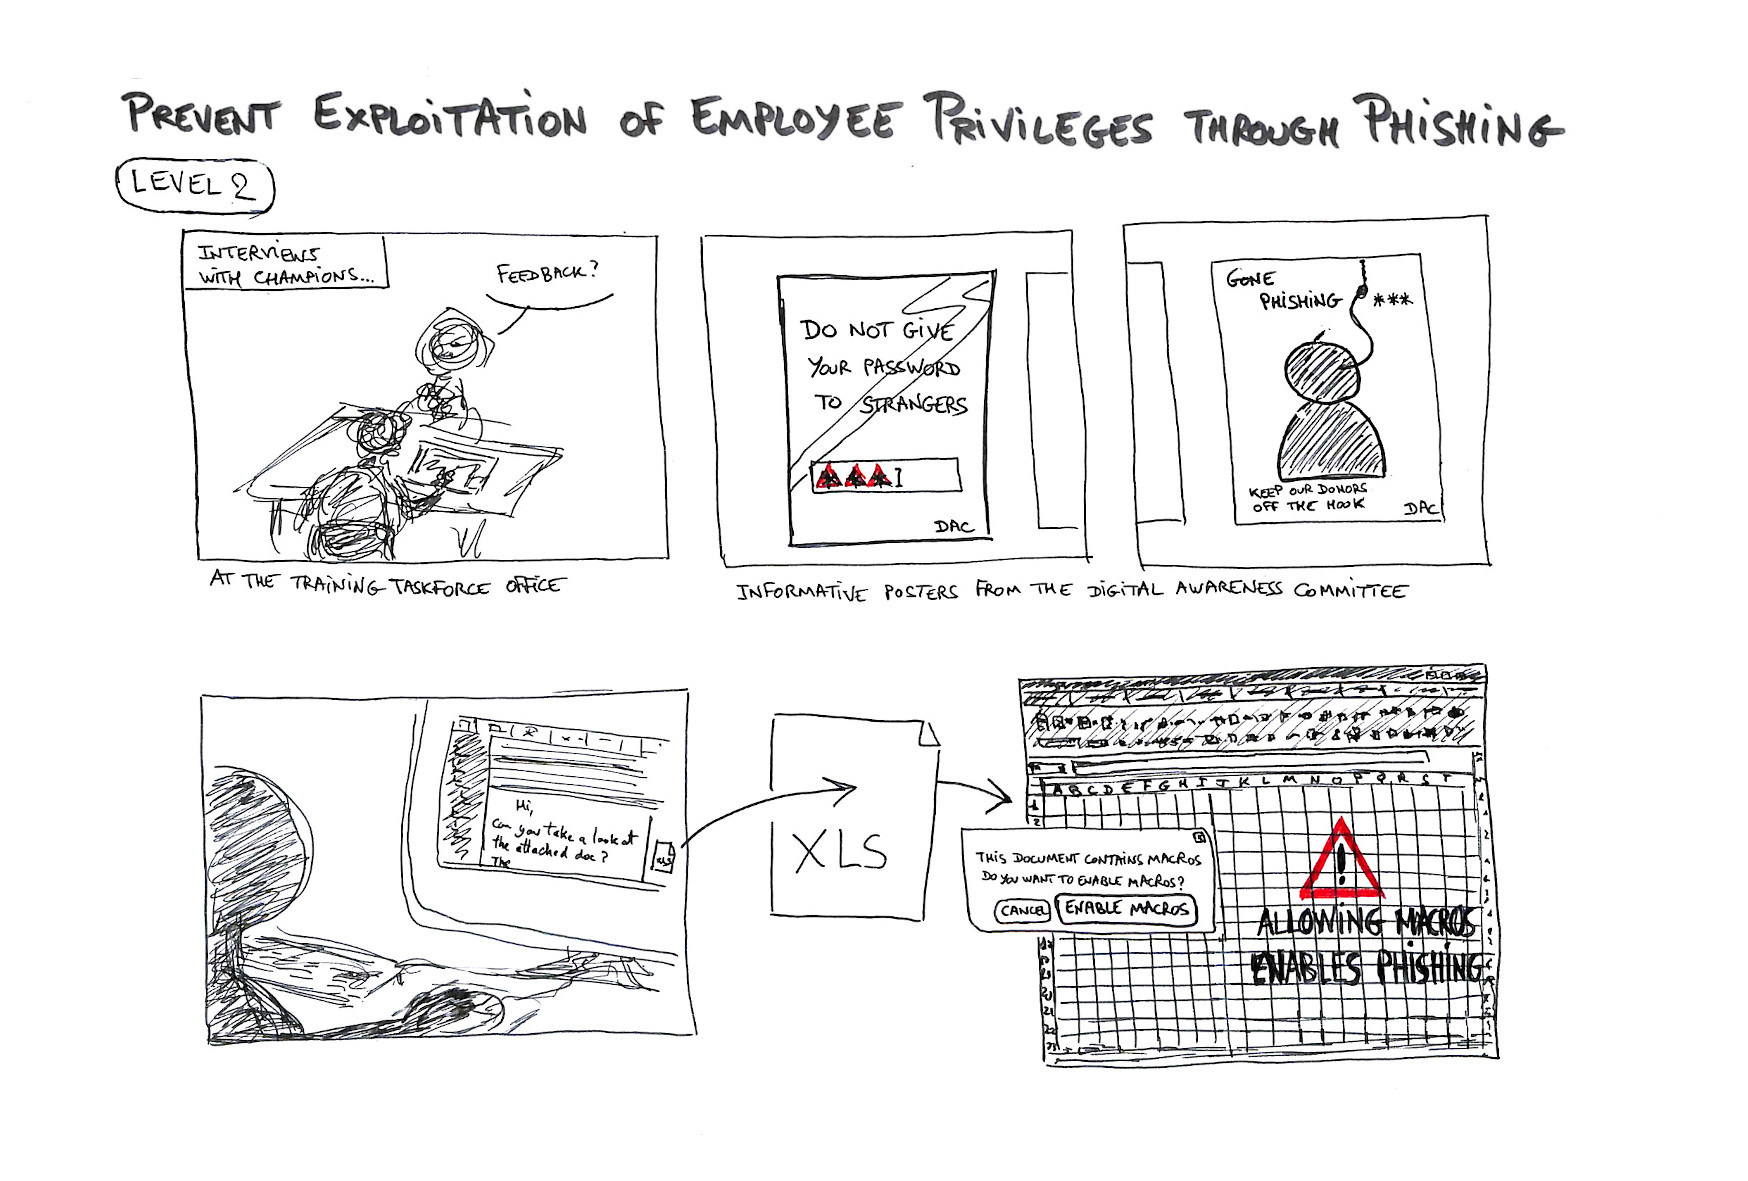 PREVENT EXPLOITATION OF EMPLOYEE PRIVILEGES THROUGH PHISHING
LEVEL 2
INTERVIEWS
WITH CHAMPIONS...
FEEDBACK?
AT THE TRAINING TASKFORCE OFFICE
DO NOT GIVE
YOUR PASSWORD
TO STRANGERS
DAC
GONE
PHISHING
***
KEEP OUR DONORS
OFF THE HOOK
DAC
INFORMATIVE POSTERS FROM THE DIGITAL AWARENESS COMMITTEE
Hi,
Can you take a look at
the attached doc?
The
XLS
XLS
A B C D E F G H I J K L M N O P Q R S T
1
2
THIS DOCUMENT CONTAINS MACROS
DO YOU WANT TO ENABLE MACROS?
CANCEL
ENABLE MACROS
!
ALLOWING MACROS
ENABLES PHISHING
21
22
23